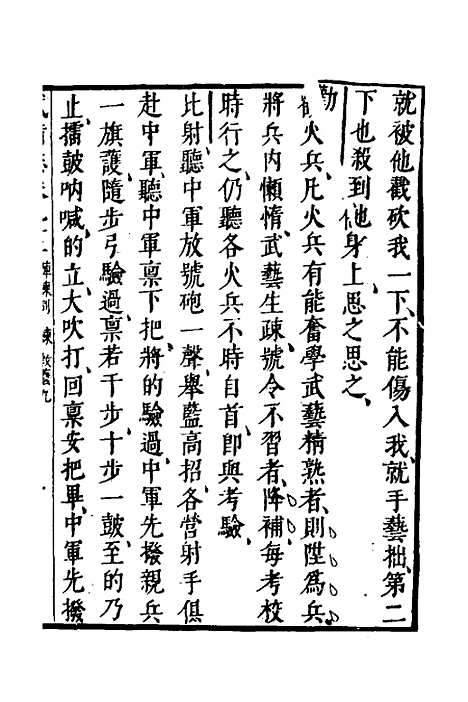 就被他戳砍我一下、不能傷入我、就手藝拙、第二
下也殺到他身上、思之思之、
勸火兵、凡火兵有能奮學武藝精熟者、則陞為兵、
將兵內懶惰、武藝生疎、號令不習者、降補、每考校
時行之、仍聽各火兵不時自首、即與考驗、
比射、聽中軍放號砲一聲、舉藍高招、各營射手俱
赴中軍、聽中軍稟下把、將的驗過、中軍先撥親兵
一旗護、隨步弓驗過、稟若干步、十步一鼓、至的乃
止、擂鼓吶喊、的立、大吹打、回稟安把畢、中軍先撥
陣練制 練 教藝九